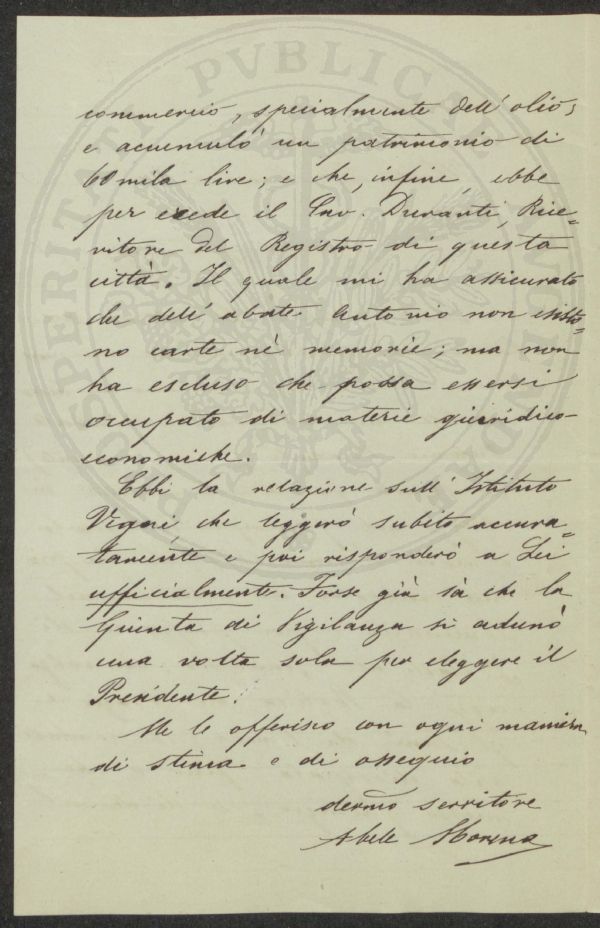 commercio, specialmente dell' olio;
e accumulò un patrimonio di
60 mila lire; e che, infine, ebbe
per erede il Cav. Duranti, Rice=
vitore del Registro di questa
città. Il quale mi ha assicurato
che dell' abate Antonio non esisto=
no carte nè memorie; ma non
ha escluso che possa essersi
occupato di materie giuridico-
economiche.
Ebbi la relazione sull' Istituto
Vegni, che leggerò subito accura=
tamente e poi risponderò a Lei
ufficialmente. Forse già sà che la
Giunta di Vigilanza si adunò
una volta sola per eleggere il
Presidente.
Me le offerisco con ogni maniera
di stima e di ossequio
devmo servitore
Abele Morena
PVBLICAE